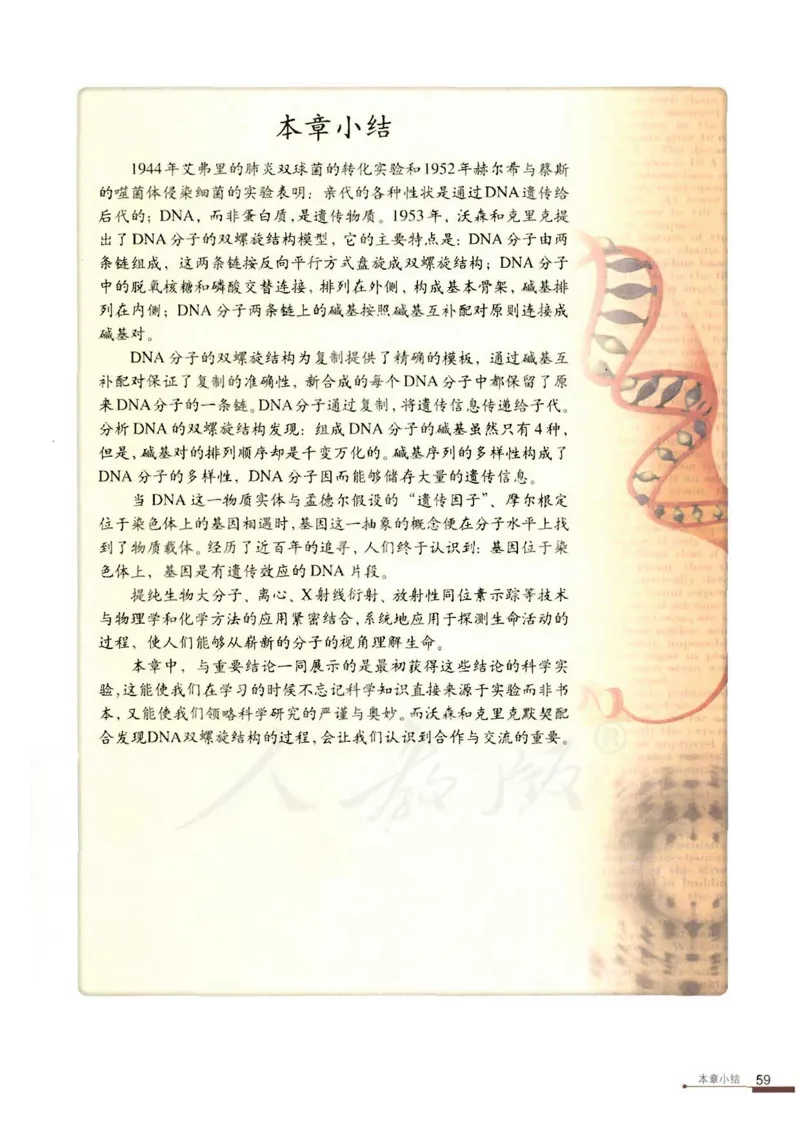 本章小结
1944年艾弗里的肺炎双球菌的转化实验和1952年赫尔希与蔡斯
的噬菌体侵染细菌的实验表明：亲代的各种性状是通过DNA遗传给
后代的；DNA，而非蛋白质，是遗传物质。1953年，沃森和克里克提
出了DNA分子的双螺旋结构模型，它的主要特点是：DNA分子由两
条链组成，这两条链按反向平行方式盘旋成双螺旋结构；DNA分子
中的脱氧核糖和磷酸交替连接，排列在外侧，构成基本骨架，碱基排
列在内侧；DNA分子两条链上的碱基按照碱基互补配对原则连接成
碱基对。
DNA分子的双螺旋结构为复制提供了精确的模板，通过碱基互
补配对保证了复制的准确性，新合成的每个DNA分子中都保留了原
来DNA分子的一条链。DNA分子通过复制，将遗传信息传递给子代。
分析DNA的双螺旋结构发现：组成DNA分子的碱基虽然只有4种，
但是，碱基对的排列顺序却是千变万化的。碱基序列的多样性构成了
DNA分子的多样性，DNA分子因而能够储存大量的遗传信息。
当DNA这一物质实体与孟德尔假设的“遗传因子”、摩尔根定
位于染色体上的基因相遇时，基因这一抽象的概念便在分子水平上找
到了物质载体。经历了近百年的追寻，人们终于认识到：基因位于染
色体上，基因是有遗传效应的DNA片段。
提纯生物大分子、离心、X射线衍射、放射性同位素示踪等技术
与物理学和化学方法的应用紧密结合，系统地应用于探测生命活动的
过程，使人们能够从崭新的分子的视角理解生命。
本章中，与重要结论一同展示的是最初获得这些结论的科学实
验，这能使我们在学习的时候不忘记科学知识直接来源于实验而非书
本，又能使我们领略科学研究的严谨与奥妙。而沃森和克里克默契配
合发现DNA双螺旋结构的过程，会让我们认识到合作与交流的重要。
人教版®
本章小结 59